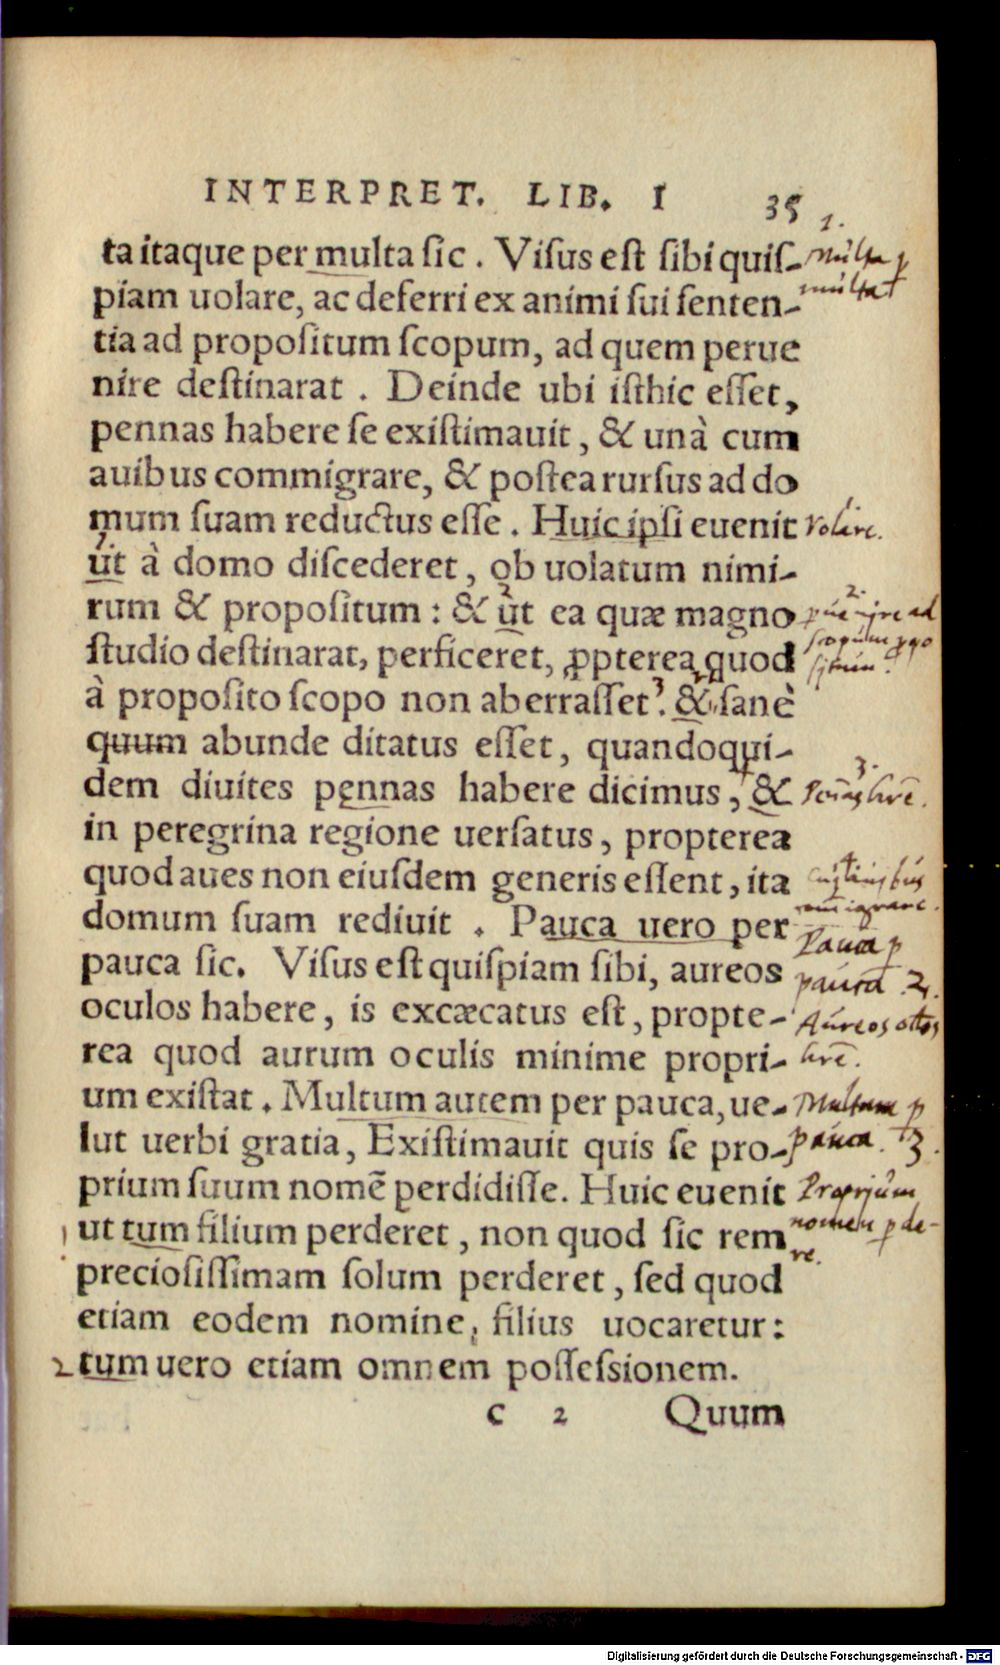 INTERPRET. LIB. I 35
ta itaque per multa sic. Visus est sibi quis-
piam uolare, ac deferri ex animi sui senten-
tia ad propositum scopum, ad quem perue
nire destinarat. Deinde ubi isthic esset,
pennas habere se existimauit, & unà cum
auibus commigrare, & postea rursus ad do
mum suam reductus esse. Huic ipsi euenit
ut à domo discederet, ob uolatum nimi-
rum & propositum: & ut ea quæ magno
studio destinarat, perficeret, ꝓpterea quod
à proposito scopo non aberrasset. & sanè
quum abunde ditatus esset, quandoqui-
dem diuites pennas habere dicimus, &
in peregrina regione uersatus, propterea
quod aues non eiusdem generis essent, ita
domum suam rediuit. Pauca uero per
pauca sic. Visus est quispiam sibi, aureos
oculos habere, is excæcatus est, propte-
rea quod aurum oculis minime propri-
um existat. Multum autem per pauca, ue-
lut uerbi gratia, Existimauit quis se pro-
prium suum nomē perdidisse. Huic euenit
ut tum filium perderet, non quod sic rem
preciosissimam solum perderet, sed quod
etiam eodem nomine, filius uocaretur:
tum uero etiam omnem possessionem.
c 2 Quum
1.
Multa p
multa
1
Volare.
2.
ad
scopum
3.
4
Pauca p
pauca. 2.
Aureos
Multum p
pauca. 3.
Proprium
nomen pde-
re.
1
2
Digitalisierung gefördert durch die Deutsche Forschungsgemeinschaft - DFG